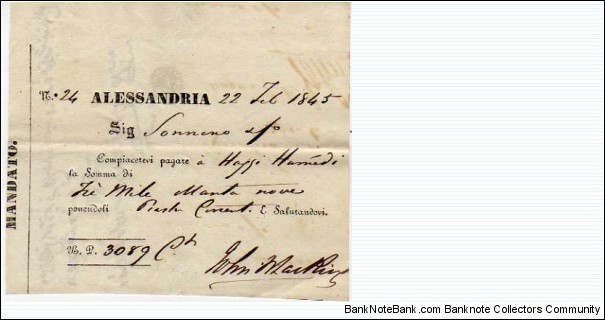 N.º 24 ALESSANDRIA 22 Feb 1845
Sig Sonnino
Compiacetevi pagare à Haggi Hamedi
la Somma di
Tre Mile Otanta nove
ponendoli Piastre Corrent. E Salutandovi.
M. P. 3089 Ct
John
MANDATO.
BankNoteBank.com - Banknote Collectors Community